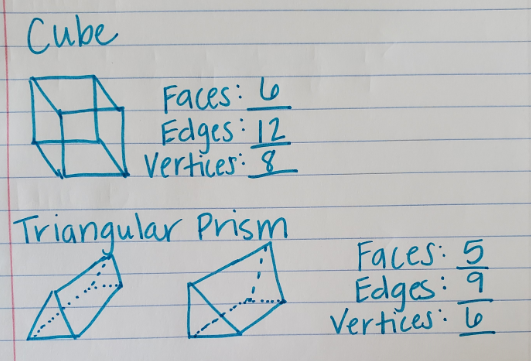 Cube
Faces: 6
Edges: 12
Vertices: 8
Triangular Prism
Faces: 5
Edges: 9
Vertices: 6